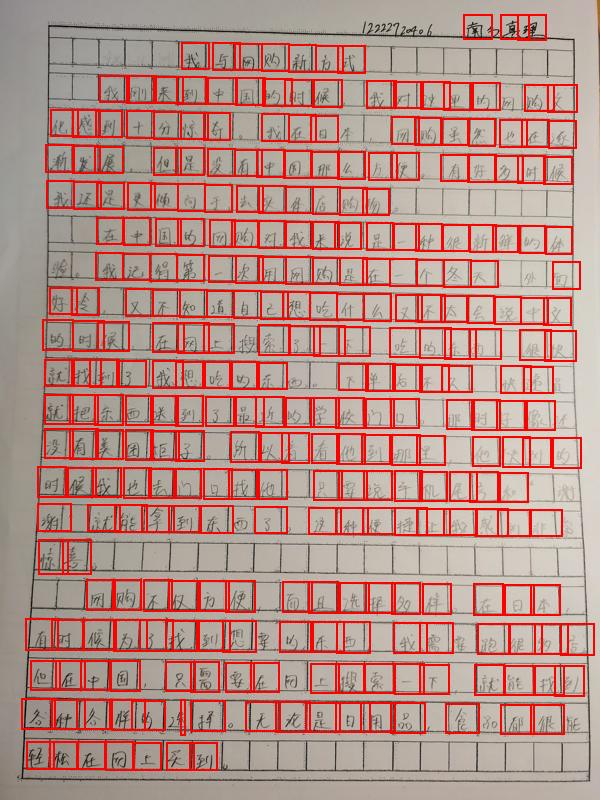 1222720406 南 真理
我与网购新方式
我刚来到中国的时候，我对这里的网购文
化感到十分惊奇。我在日本，网购虽然也在逐
渐发展，但是没有中国那么方便。有好多时候
我还是更倾向于去实体店购物。
在中国的网购对我来说是一种很新鲜的体
验。我记得第一次用网购是在一个冬天，外面
好冷，又不知道自己想吃什么又不太会说中文
的时候，在网上搜索了一下，吃的东西，很快
就找到了我想吃的东西。下单后不久，快递员
就把东西送到了最近的学校门口。那时子豪还
没有美团柜子。所以看看他到那里，他次到的
时候我也去门口找他，只要说手机尾号和"谢
谢"就能拿到东西了。这种便捷让我感到非常
惊喜。
网购不仅方便，而且选择多样。在日本，
有时候为了找到想要的东西，我需要跑很多店。
但在中国，只需要在网上搜索一下，就能找到
各种各样的选择。无论是日用品，食品都很能
轻松在网上买到。